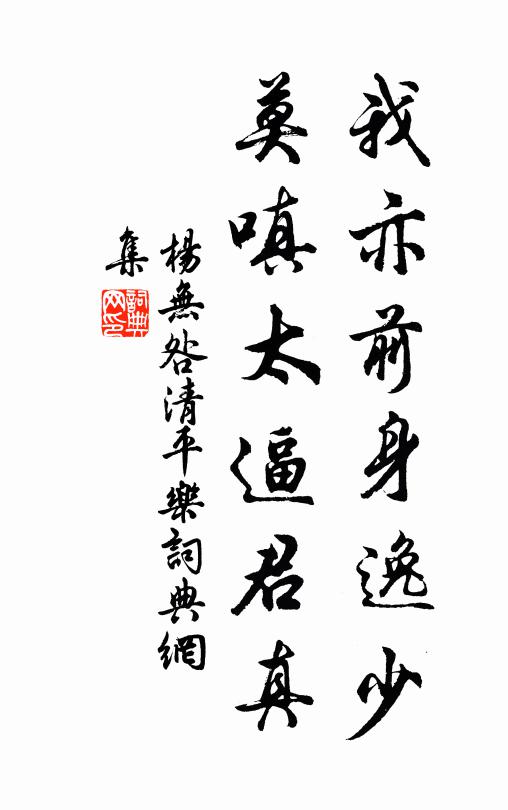 我亦前身逸少
莫嗔太逼君真
楊無咎清平樂詞典網
集
詞典網印